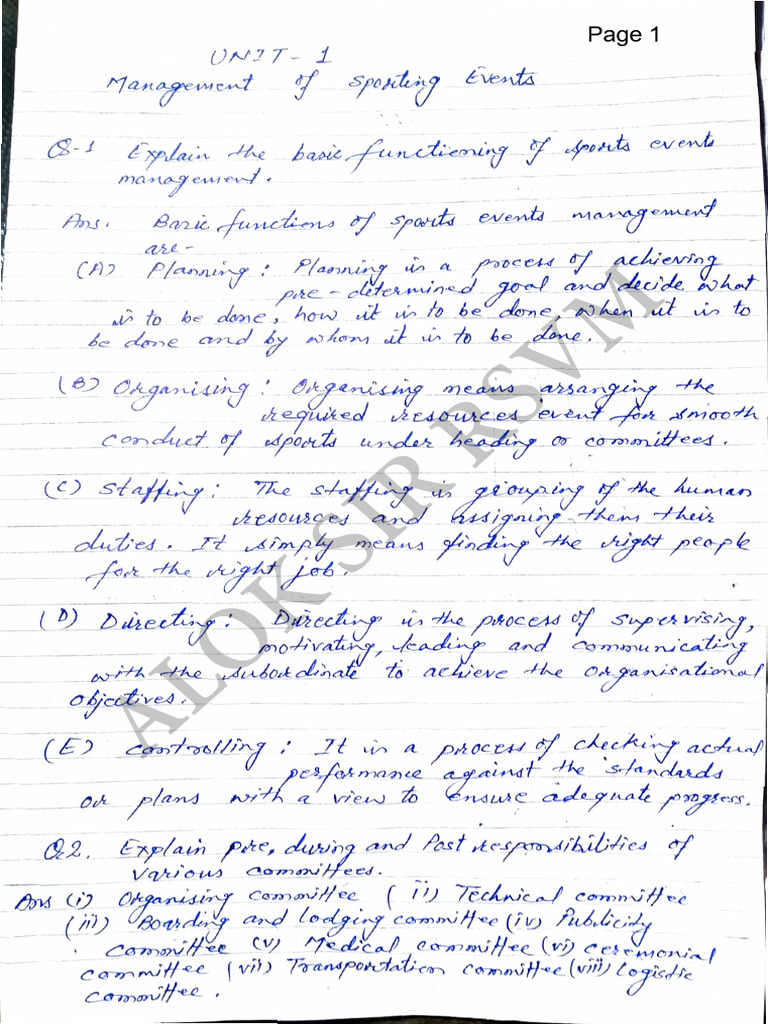 Page 1
UNIT - 1
Management of Sporting Events
Q-1 Explain the basic functioning of sports events
management.
Ans. Basic functions of sports events management
are-
(A) Planning : Planning is a process of achieving
pre-determined goal and decide what
is to be done, how it is to be done, when it is to
be done and by whom it is to be done.
(B) Organising : Organising means arranging the
required resources event for smooth
conduct of sports under heading or committees.
(C) Staffing : The staffing is grouping of the human
resources and assigning them their
duties. It simply means finding the right people
for the right job.
(D) Directing : Directing is the process of supervising,
motivating, leading and communicating
with the subordinate to achieve the organisational
objectives.
(E) Controlling : It is a process of checking actual
performance against the standards
or plans with a view to ensure adequate progress.
Q2. Explain pre, during and Post responsibilities of
various committees.
Ans (i) Organising committee (ii) Technical committee
(iii) Boarding and lodging committee (iv) Publicity
committee (v) Medical committee (vi) ceremonial
committee (vii) Transportation committee (viii) Logistic
committee.
ALOK SIR RSVM